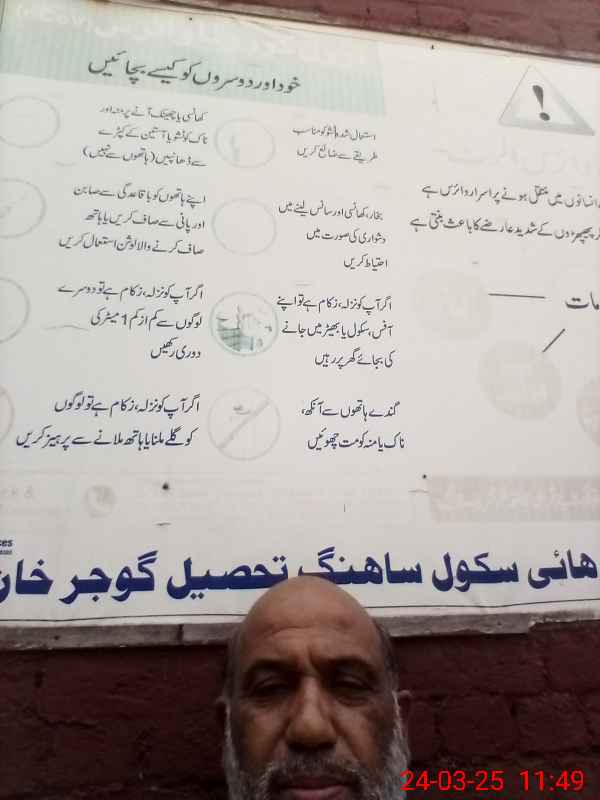 خود اور دوسروں کو کیسے بچائیں
کھانسی یا چھینک آنے پر منہ اور
ناک کو ٹشو یا آستین کے کپڑے
سے ڈھانپیں (ہاتھوں سے نہیں)
استعمال شدہ ٹشو کو مناسب
طریقے سے ضائع کریں
اپنے ہاتھوں کو باقاعدگی سے صابن
اور پانی سے صاف کریں یا ہاتھ
صاف کرنے والا لوشن استعمال کریں
بخار، کھانسی اور سانس لینے میں
دشواری کی صورت میں
احتیاط کریں
انسانوں میں منتقل ہونے پر اسرار وائرس ہے
پھیپھڑوں کے شدید عارضے کا باعث بنتی ہے
اگر آپ کو نزلہ، زکام ہے تو دوسرے
لوگوں سے کم از کم 1 میٹر کی
دوری رکھیں
اگر آپ کو نزلہ، زکام ہے تو اپنے
آفس، سکول یا بھیڑ میں جانے
کی بجائے گھر پر رہیں
مات
اگر آپ کو نزلہ، زکام ہے تو لوگوں
کو گلے ملنا یا ہاتھ ملانے سے پرہیز کریں
گندے ہاتھوں سے آنکھ،
ناک یا منہ کو مت چھوئیں
ھائی سکول ساھنگ تحصیل گوجر خان
24-03-25 11:49